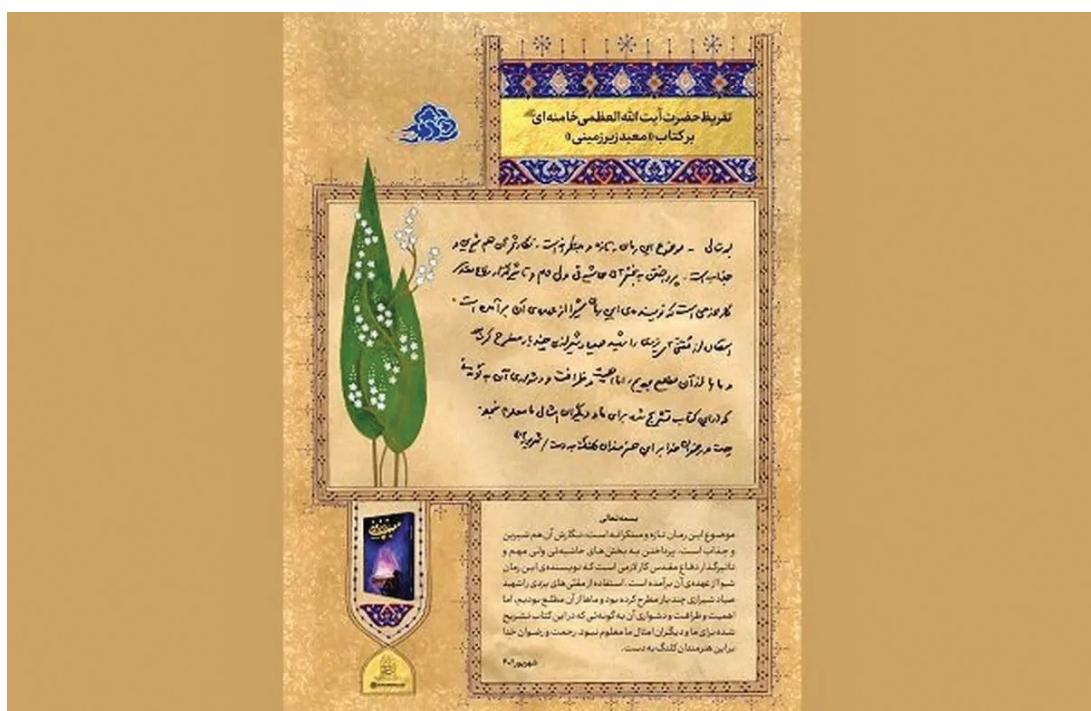 تقریظ حضرت آیت الله العظمی خامنه‌ای
بر کتاب «معبد زیرزمینی»
بسمه‌تعالی - موضوع این رمان، تازه و مبتکرانه است، نگارش آن هم شیرین و
جذاب است. پرداختن به بخشهای حاشیه‌ئی ولی مهم و تاثیرگذار دفاع مقدس
کار لازمی است که نویسنده‌ی این رمان شیوا از عهده‌ی آن برآمده است.
استفاده از مقنی‌های یزدی را شهید صیاد شیرازی چند بار مطرح کرده بود
و ماها از آن مطلع بودیم، اما اهمیت و ظرافت و دشواری آن به گونه‌ئی
که در این کتاب تشریح شده برای ما و دیگران امثال ما معلوم نبود.
رحمت و رضوان خدا بر این هنرمندان کلنگ به دست
بسمه‌تعالی
موضوع این رمان تازه و مبتکرانه است، نگارش آن هم شیرین
و جذاب است. پرداختن به بخش‌های حاشیه‌ئی ولی مهم و
تاثیرگذار دفاع مقدس کار لازمی است که نویسنده‌ی این رمان
شیوا از عهده‌ی آن برآمده است. استفاده از مقنی‌های یزدی را شهید
صیاد شیرازی چند بار مطرح کرده بود و ماها از آن مطلع بودیم، اما
اهمیت و ظرافت و دشواری آن به گونه‌ئی که در این کتاب تشریح
شده برای ما و دیگران امثال ما معلوم نبود. رحمت و رضوان خدا
بر این هنرمندان کلنگ به دست.
معبد زیرزمینی